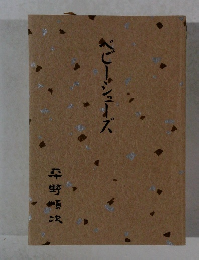 ベビーシューズ
平野順次